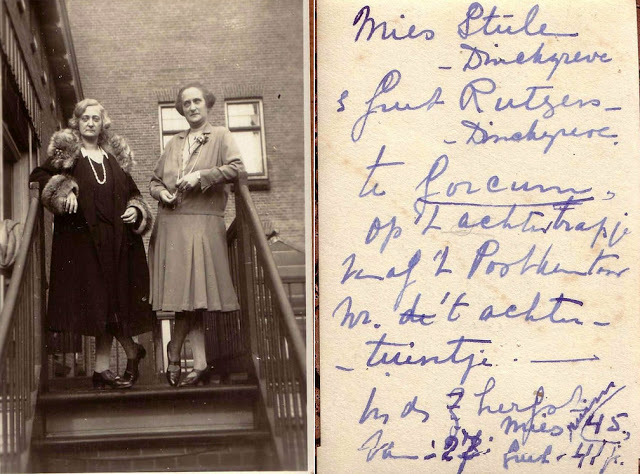 Mies Stüle
- Dinckgreve
& Guut Rutgers -
- Dinckgreve.
te Gorcum,
op 't achtertrapje
van af 't Postkantoor
nr. de 't achter -
- tuintje. —
In de herfst
Mies 45,
Van 27. Guut - 45 j.